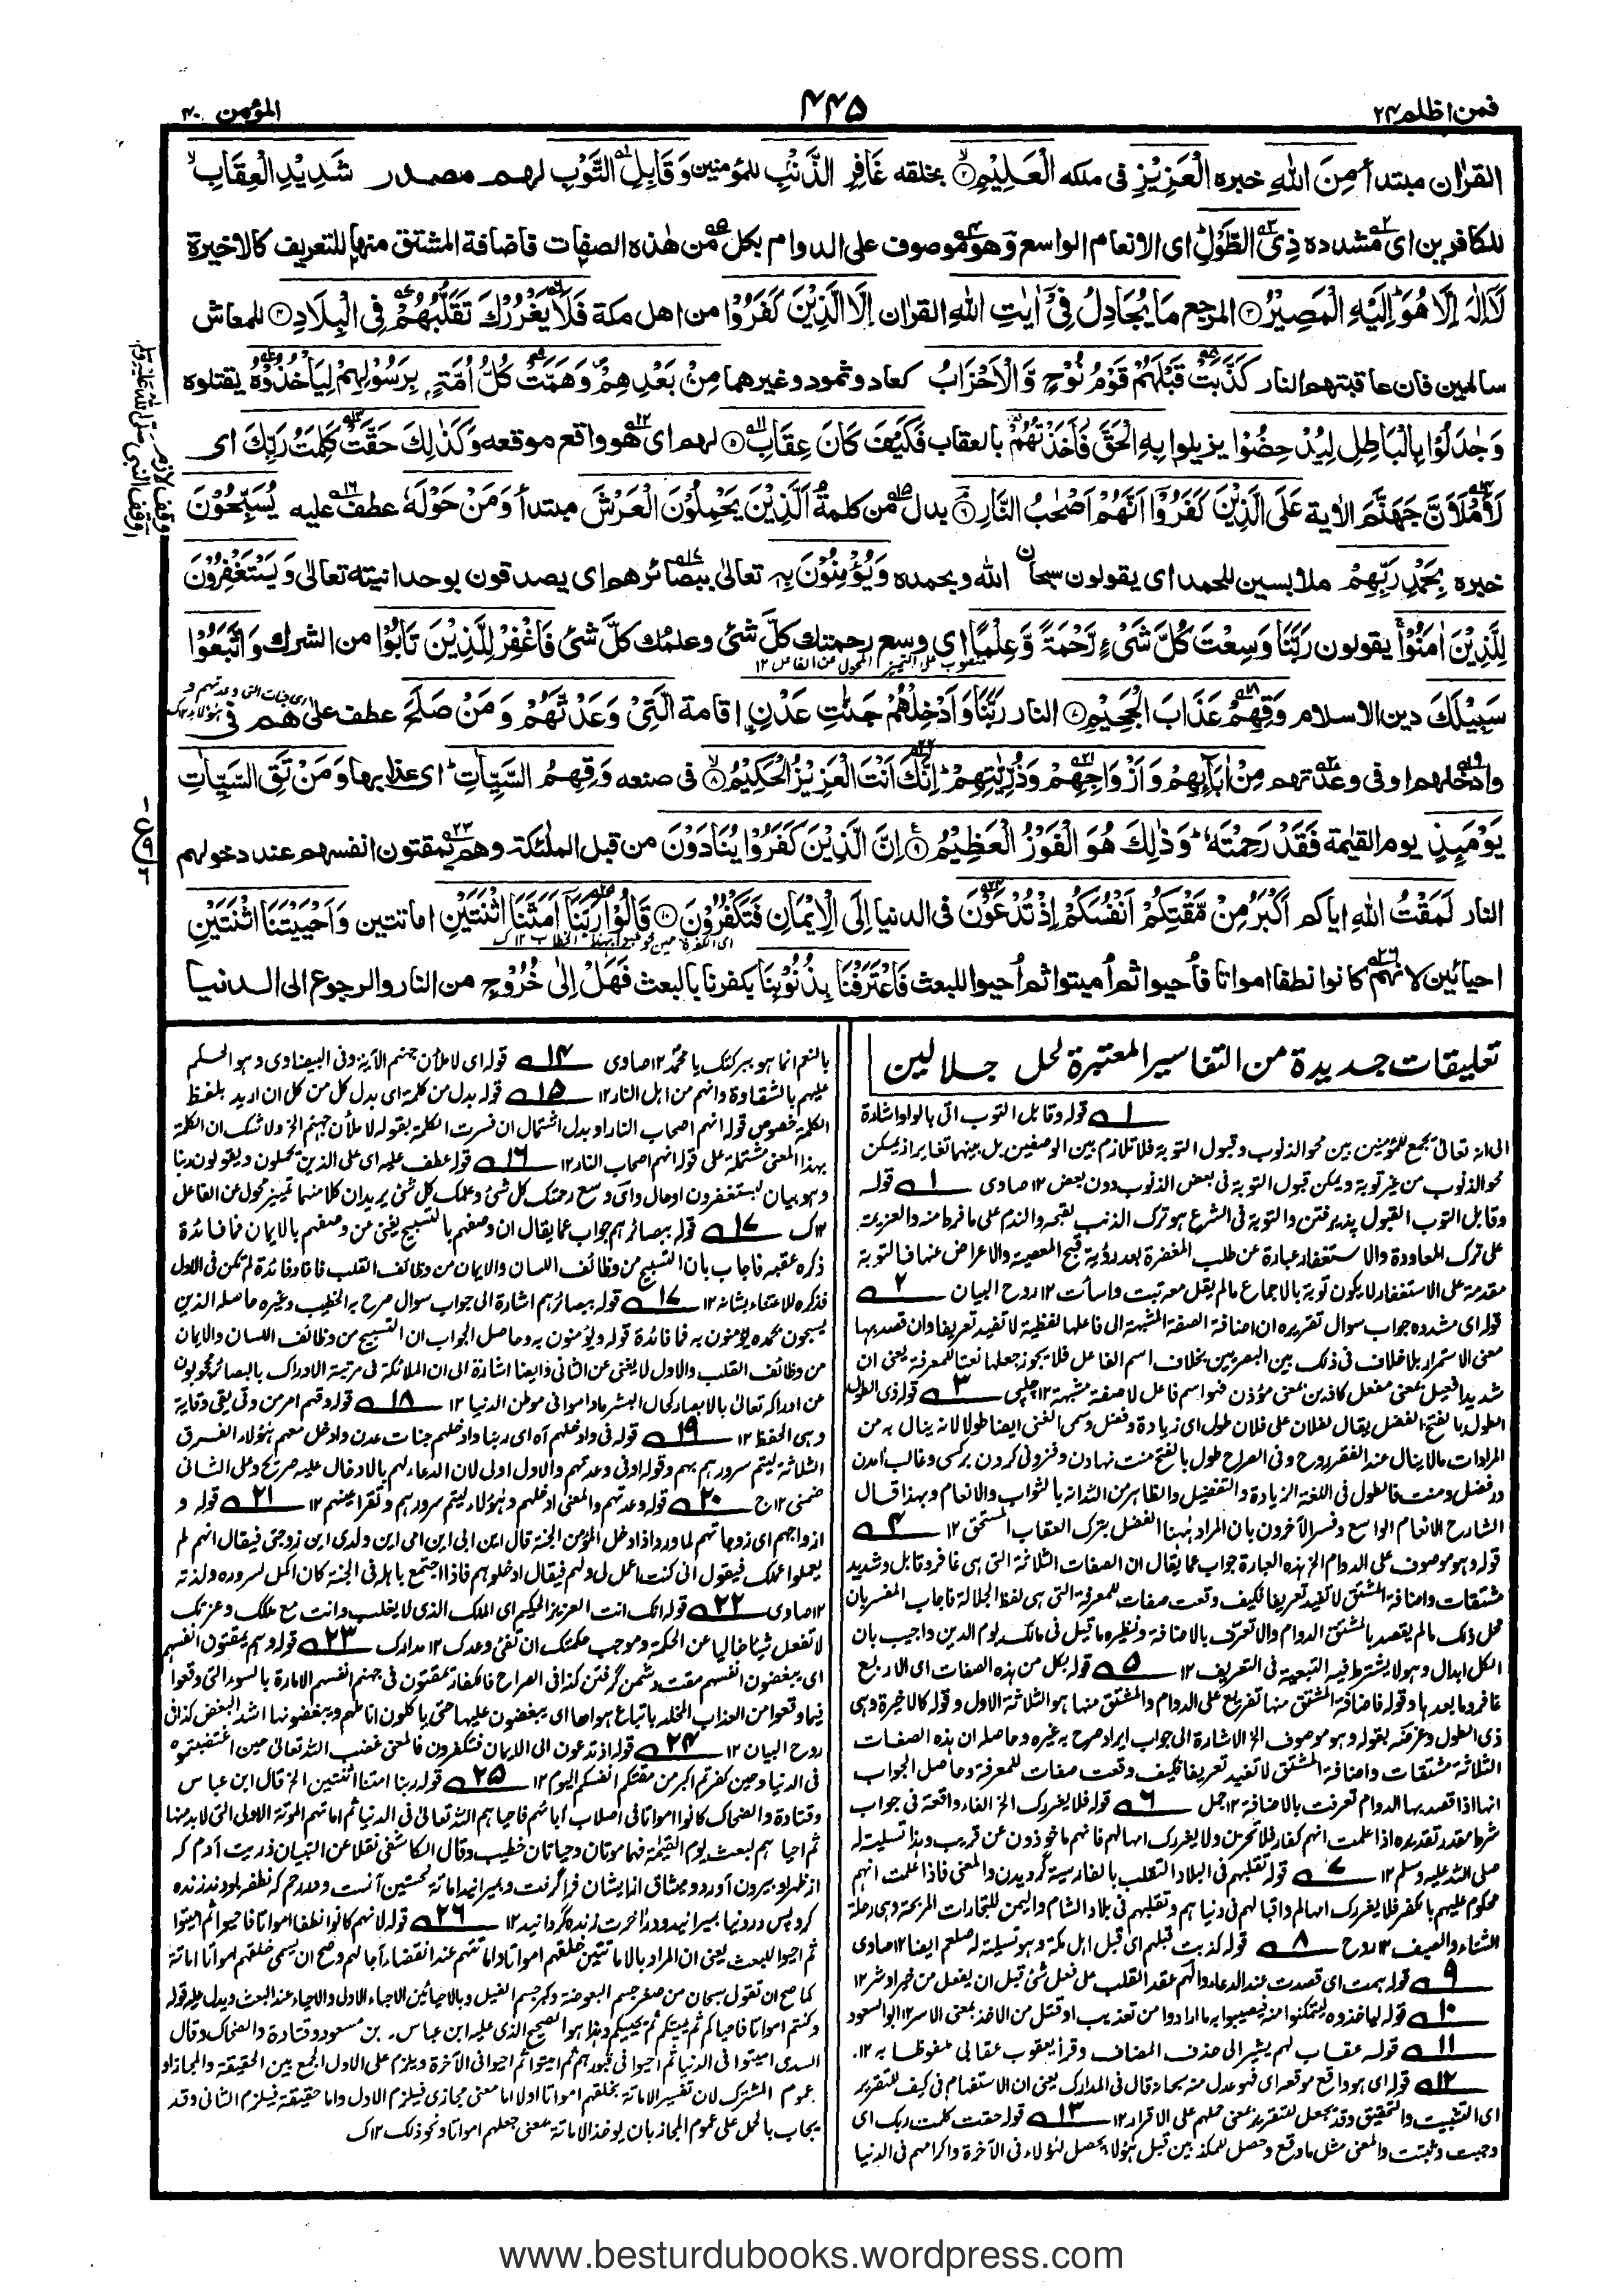 فمن اظلم ٢٤
٤٤٥
المؤمن ٤٠
القرٰان مبتدأ مِنَ اللهِ خبره الْعَزِيْزِ فی ملكه الْعَلِيْمِ ۝٢ بخلقه غَافِرِ الذَّنْۢبِ للمؤمنين وَقَابِلِ التَّوْبِ لهم مصدر شَدِيْدِ الْعِقَابِ
للكافرين ای مشدده ذِی الطَّوْلِ ای الانعام الواسع وهو موصوف علی الدوام بكل من هٰذه الصفات فاضافة المشتق منها للتعريف كالاخيرة
لَآ اِلٰهَ اِلَّا هُوَ اِلَيْهِ الْمَصِيْرُ ۝٣ المرجع مَا يُجَادِلُ فِیْٓ اٰيٰتِ اللهِ القرٰان اِلَّا الَّذِيْنَ كَفَرُوْا من اهل مكة فَلَا يَغْرُرْكَ تَقَلُّبُهُمْ فِی الْبِلَادِ ۝٤ للمعاش
سالمين فان عاقبتهم النار كَذَّبَتْ قَبْلَهُمْ قَوْمُ نُوْحٍ وَّالْاَحْزَابُ كعاد وثمود وغيرهما مِنْۢ بَعْدِهِمْ وَهَمَّتْ كُلُّ اُمَّةٍۭ بِرَسُوْلِهِمْ لِيَاْخُذُوْهُ يقتلوه
وَجٰدَلُوْا بِالْبَاطِلِ لِيُدْحِضُوْا يزيلوا بِهِ الْحَقَّ فَاَخَذْتُهُمْ بالعقاب فَكَيْفَ كَانَ عِقَابِ ۝٥ لهم ای هو واقع موقعه وَكَذٰلِكَ حَقَّتْ كَلِمَتُ رَبِّكَ ای
لَاَمْلَاَنَّ جَهَنَّمَ الاية عَلَی الَّذِيْنَ كَفَرُوْٓا اَنَّهُمْ اَصْحٰبُ النَّارِ ۝٦ بدل من كلمة اَلَّذِيْنَ يَحْمِلُوْنَ الْعَرْشَ مبتدأ وَمَنْ حَوْلَهٗ عطف عليه يُسَبِّحُوْنَ
خبره بِحَمْدِ رَبِّهِمْ ملابسين للحمد ای يقولون سبحان الله وبحمده وَيُؤْمِنُوْنَ بِهٖ تعالٰی ببصائرهم ای يصدقون بوحدانيته تعالٰی وَيَسْتَغْفِرُوْنَ
لِلَّذِيْنَ اٰمَنُوْا يقولون رَبَّنَا وَسِعْتَ كُلَّ شَیْءٍ رَّحْمَةً وَّعِلْمًا ای وسع رحمتك كلَّ شیٔ وعلمُك كلَّ شیٔ فَاغْفِرْ لِلَّذِيْنَ تَابُوْا من الشرك وَاتَّبَعُوْا
منصوب علی التمييز المحول عن الفاعل ١٢
سَبِيْلَكَ دين الاسلام وَقِهِمْ عَذَابَ الْجَحِيْمِ النار رَبَّنَا وَاَدْخِلْهُمْ جَنّٰتِ عَدْنِ اقامة الَّتِیْ وَعَدْتَّهُمْ وَمَنْ صَلَحَ عطف علٰی هم فی
وادخلهم اوفی وعدتهم مِنْ اٰبَآئِهِمْ وَاَزْوَاجِهِمْ وَذُرِّيّٰتِهِمْ اِنَّكَ اَنْتَ الْعَزِيْزُ الْحَكِيْمُ ۝٨ فی صنعه وَقِهِمُ السَّيِّاٰتِ ای عذابها وَمَنْ تَقِ السَّيِّاٰتِ
يَوْمَئِذٍ يوم القيٰمة فَقَدْ رَحِمْتَهٗ وَذٰلِكَ هُوَ الْفَوْزُ الْعَظِيْمُ ۝٩ اِنَّ الَّذِيْنَ كَفَرُوْا يُنَادَوْنَ من قبل الملٰئكة وهم يمقتون انفسهم عند دخولهم
النار لَمَقْتُ اللهِ اياكم اَكْبَرُ مِنْ مَّقْتِكُمْ اَنْفُسَكُمْ اِذْ تُدْعَوْنَ فی الدنيا اِلَی الْاِيْمَانِ فَتَكْفُرُوْنَ ۝١٠ قَالُوْا رَبَّنَآ اَمَتَّنَا اثْنَتَيْنِ اماتتين وَاَحْيَيْتَنَا اثْنَتَيْنِ
احيائين لانهم كانوا نطفا امواتا فاُحيوا ثم اُميتوا ثم اُحيوا للبعث فَاعْتَرَفْنَا بِذُنُوْبِنَا بكفرنا بالبعث فَهَلْ اِلٰی خُرُوْجٍ من النار والرجوع الی الدنيا
تعليقات جديدة من التفاسير المعتبرة لحل جلالين
١ قوله وقابل التوب اتی بالواو اشارة
الی انه تعالیٰ يجمع للمؤمنين بين محو الذنوب وقبول التوبة فلا تلازم بين الوصفين بل بينهما تغاير اذ يمكن
محو الذنوب من غير توبة ويمكن قبول التوبة فی بعض الذنوب دون بعض ١٢ صاوی ١ قوله
وقابل التوب القبول پذيرفتن والتوبة فی الشرع هو ترك الذنب لقبحه والندم علی ما فرط منه والعزيمة
علی ترك المعاودة والاستغفار عبارة عن طلب المغفرة بعد رؤية قبح المعصية والاعراض عنها فالتوبة
مقدمة علی الاستغفار لا يكون توبة بالاجماع مالم يقل معه تبت واسأت ١٢ روح البيان ٢
قوله ای مشدده جواب سوال تقريره ان اضافة الصفة المشبهة الی فاعلها لفظية لا تفيد تعريفا وان قصد بها
معنی الاستمرار بلا خلاف فی ذلك بين البصريين بخلاف اسم الفاعل فلا يجوز جعلها نعتا للمعرفة يعنی ان
شديدا فعيل بمعنی مفعل كاذين بمعنی مؤذن فهو اسم فاعل لا صفة مشبهة ١٢ چلپی ٣ قوله ذی الطول
الطول بالفتح الفضل يقال لفلان علی فلان طول ای زيادة وفضل وسمی الغنی ايضا طولا لانه ينال به من
المرادات مالا ينال عند الفقر روح وفی الصراح طول بالفتح منت نهادن وفزونی كردن بر كسی وغالب آمدن
در فضل ومنت فالطول فی اللغة الزيادة والتفضيل والظاهر من الشدانه بالثواب والانعام وبهذا قال
الشارح الانعام الواسع وفسر الآخرون بان المراد ههنا الفضل بترك العقاب المستحق ١٢ ٤
قوله وهو موصوف علی الدوام الخ هذه العبارة جواب عما يقال ان الصفات الثلاثة التی هی غافر وقابل وشديد
مشتقات واضافة المشتق لا تفيد تعريفا فكيف وقعت صفات للمعرفة التی هی لفظ الجلالة فاجاب المفسر بان
محل ذلك مالم يقصد بالمشتق الدوام والا تعرف بالاضافة ونظيره ما قيل فی مالك يوم الدين واجيب بان
الكل ابدال وهو لا يشترط فيه التبعية فی التعريف ١٢ ٥ قوله بكل من هذه الصفات ای الاربع
غافر وما بعدها وقوله فاضافة المشتق منها تفريع علی الدوام والمشتق منها هو الثلاثة الاول وقوله كالاخيرة وهی
ذی الطول وغرضه بقوله وهو موصوف الخ الاشارة الی جواب ايراد صرح به غيره وحاصله ان هذه الصفات
الثلاثة مشتقات واضافة المشتق لا تفيد تعريفا فكيف وقعت صفات للمعرفة وحاصل الجواب
انها اذا قصد بها الدوام تعرفت بالاضافة ١٢ جمل ٦ قوله فلا يغررك الخ الفاء واقعة فی جواب
شرط مقدر تقديره اذا علمت انهم كفار فلا تحزن ولا يغررك امهالهم فانهم ماخوذون عن قريب وهذا تسلية له
صلی الله عليه وسلم ١٢ ٧ قوله تقلبهم فی البلاد التقلب بالفارسية گرديدن والمعنی فاذا علمت انهم
محكوم عليهم بالكفر فلا يغررك امهالهم واقبالهم فی دنياهم وتقلبهم فی بلاد الشام واليمن للتجارات المربحة وهی رحلة
الشتاء والصيف ١٢ روح ٨ قوله كذبت قبلهم ای قبل اهل مكة وهو تسلية له صلعم ايضا ١٢ صاوی
٩ قوله همت ای قصدت عند الدعاء والهم عقد القلب علی فعل شیٔ قبل ان يفعل من خير او شر ١٢
١٠ قوله لياخذوه ليتمكنوا منه فيصيبوا به ما ارادوا من تعذيب او قتل من الاخذ بمعنی الاسر ١٢ ابو السعود
١١ قوله عقاب لهم يشير الی حذف المضاف وقرأ يعقوب عقابی ملفوظا به ١٢
١٢ قوله ای هو واقع موقعه ای فهو عدل منه سبحانه قال فی المدارك يعنی ان الاستفهام فی كيف للتقرير
ای التثبيت والتحقيق وقد يجعل للتقرير بمعنی حملهم علی الاقرار ١٢ ١٣ قوله حقت كلمت ربك ای
وجبت وثبتت والمعنی مثل ما وقع وحصل للمكذبين قبل هؤلاء يحصل لهؤلاء فی الآخرة واكرامهم فی الدنيا
بالنعم انما هو ببركتك يا محمد ١٢ صاوی ١٤ قوله ای لاملأن جهنم الآية وفی البيضاوی وهو الحكم
عليهم بالشقاوة وانهم من اهل النار ١٢ ١٥ قوله بدل من كلمة ای بدل كل من كل ان اريد بلفظ
الكلمة خصوص قوله انهم اصحاب النار او بدل اشتمال ان فسرت الكلمة بقوله لاملأن جهنم الخ ولا شك ان الكلمة
بهذا المعنی مشتملة علی قوله انهم اصحاب النار ١٢ ١٦ قوله عطف عليه ای علی الذين يحملون ويقولون ربنا
وهو بيان ليستغفرون او حال وای وسع رحمتك كل شیٔ وعلمك كل شیٔ يريد ان كلا منهما تمييز محول عن الفاعل
١٢ ك ١٧ قوله ببصائرهم جواب عما يقال ان وصفهم بالتسبيح يغنی من وصفهم بالايمان فما فائدة
ذكره عقبه فاجاب بان التسبيح من وظائف اللسان والايمان من وظائف القلب فافاد فائدة لم تكن فی الاول
فذكره للاعتناء بشانه ١٢ ١٧ قوله ببصائرهم اشارة الی جواب سوال صرح به الخطيب وغيره حاصله الذين
يسبحون بحمده يؤمنون به فما فائدة قوله ويؤمنون به وحاصل الجواب ان التسبيح من وظائف اللسان والايمان
من وظائف القلب والاول لا يغنی عن الثانی وايضا اشارة الی ان الملائكة فی مرتبة الادراك بالبصائر محجوبون
عن ادراكه تعالیٰ بالابصار كحال البشر ماداموا فی موطن الدنيا ١٢ ١٨ قوله وقهم امر من وقی يقی وقاية
وهی الحفظ ١٢ ١٩ قوله فی وادخلهم آه ای ربنا وادخلهم جنات عدن وادخل معهم هؤلاء الفرق
الثلاثة ليتم سرورهم بهم وقوله اوفی وعدتهم والاول اولی لان الدعاء لهم بالادخال عليه صريح وعلی الثانی
ضمنی ١٢ ج ٢٠ قوله وعدتهم والمعنی ادخلهم وهؤلاء ليتم سرورهم وتقر اعينهم ١٢ ٢١ قوله و
ازواجهم ای زوجاتهم لما ورد واذا دخل المؤمن الجنة قال اين ابی اين امی اين ولدی اين زوجتی فيقال انهم لم
يعملوا عملك فيقول انی كنت اعمل لی ولهم فيقال ادخلوهم فاذا اجتمع باهله فی الجنة كان اكمل لسروره ولذته
١٢ صاوی ٢٢ قوله انك انت العزيز الحكيم ای الملك الذی لا يغلب وانت مع ملكك وعزتك
لا تفعل شيئا خاليا عن الحكمة وموجب حكمتك ان تفی وعدك ١٢ مدارك ٢٣ قوله وهم يمقتون انفسهم
ای يبغضون انفسهم مقت دشمن گرفتن كذا فی الصراح فالكفار يمقتون فی جهنم انفسهم الامارة بالسوء التی وقعوا
فيما وقعوا من العذاب المخلد باتباع هواها ای يبغضون عليها حتی ياكلون اناملهم ويبغضونها اشد البغض كذا فی
روح البيان ١٢ ٢٤ قوله اذ تدعون الی الايمان فتكفرون فالمعنی غضب الله تعالیٰ حين اغضبتموه
فی الدنيا وحين كفرتم اكبر من مقتكم انفسكم اليوم ١٢ ٢٥ قوله ربنا امتنا اثنتين الخ قال ابن عباس
وقتادة والضحاك كانوا امواتا فی اصلاب آبائهم فاحياهم الله تعالیٰ فی الدنيا ثم اماتهم الموتة الاولی التی لا بد منها
ثم احياهم لبعث يوم القيٰمة فهما موتان وحياتان خطيب وقال الكاشفی نقلا عن التبيان ذريت آدم كه
كرد پس در دنيا بميرانيد ودر آخرت زنده گردانيد ١٢ ٢٦ قوله لانهم كانوا نطفا امواتا فاحيوا ثم اميتوا
ثم احيوا للبعث يعنی ان المراد بالاماتتين خلقهم امواتا واماتتهم عند انقضاء آجالهم وصح ان يسمی خلقهم امواتا اماتة
كما صح ان تقول سبحان من صغر جسم البعوضة وكبر جسم الفيل وبالاحيائين الاحياء الاولی والاحياء عند البعث ويدل عليه قوله
وكنتم امواتا فاحياكم ثم يميتكم ثم يحييكم وهذا هو الصحيح الذی عليه ابن عباس، بن مسعود وقتادة والضحاك وقال
السدی اميتوا فی الدنيا ثم احيوا فی قبورهم ثم اميتوا ثم احيوا فی الآخرة ويلزم علی الاول الجمع بين الحقيقة والمجاز او
عموم المشترك لان تفسير الاماتة بخلقهم امواتا اولا اما معنی مجازی فيلزم الاول واما حقيقة فيلزم الثانی وقد
يجاب بالحمل علی عموم المجاز بان يوخذ الاماتة بمعنی جعلهم امواتا ونحو ذلك ١٢ ك
www.besturdubooks.wordpress.com